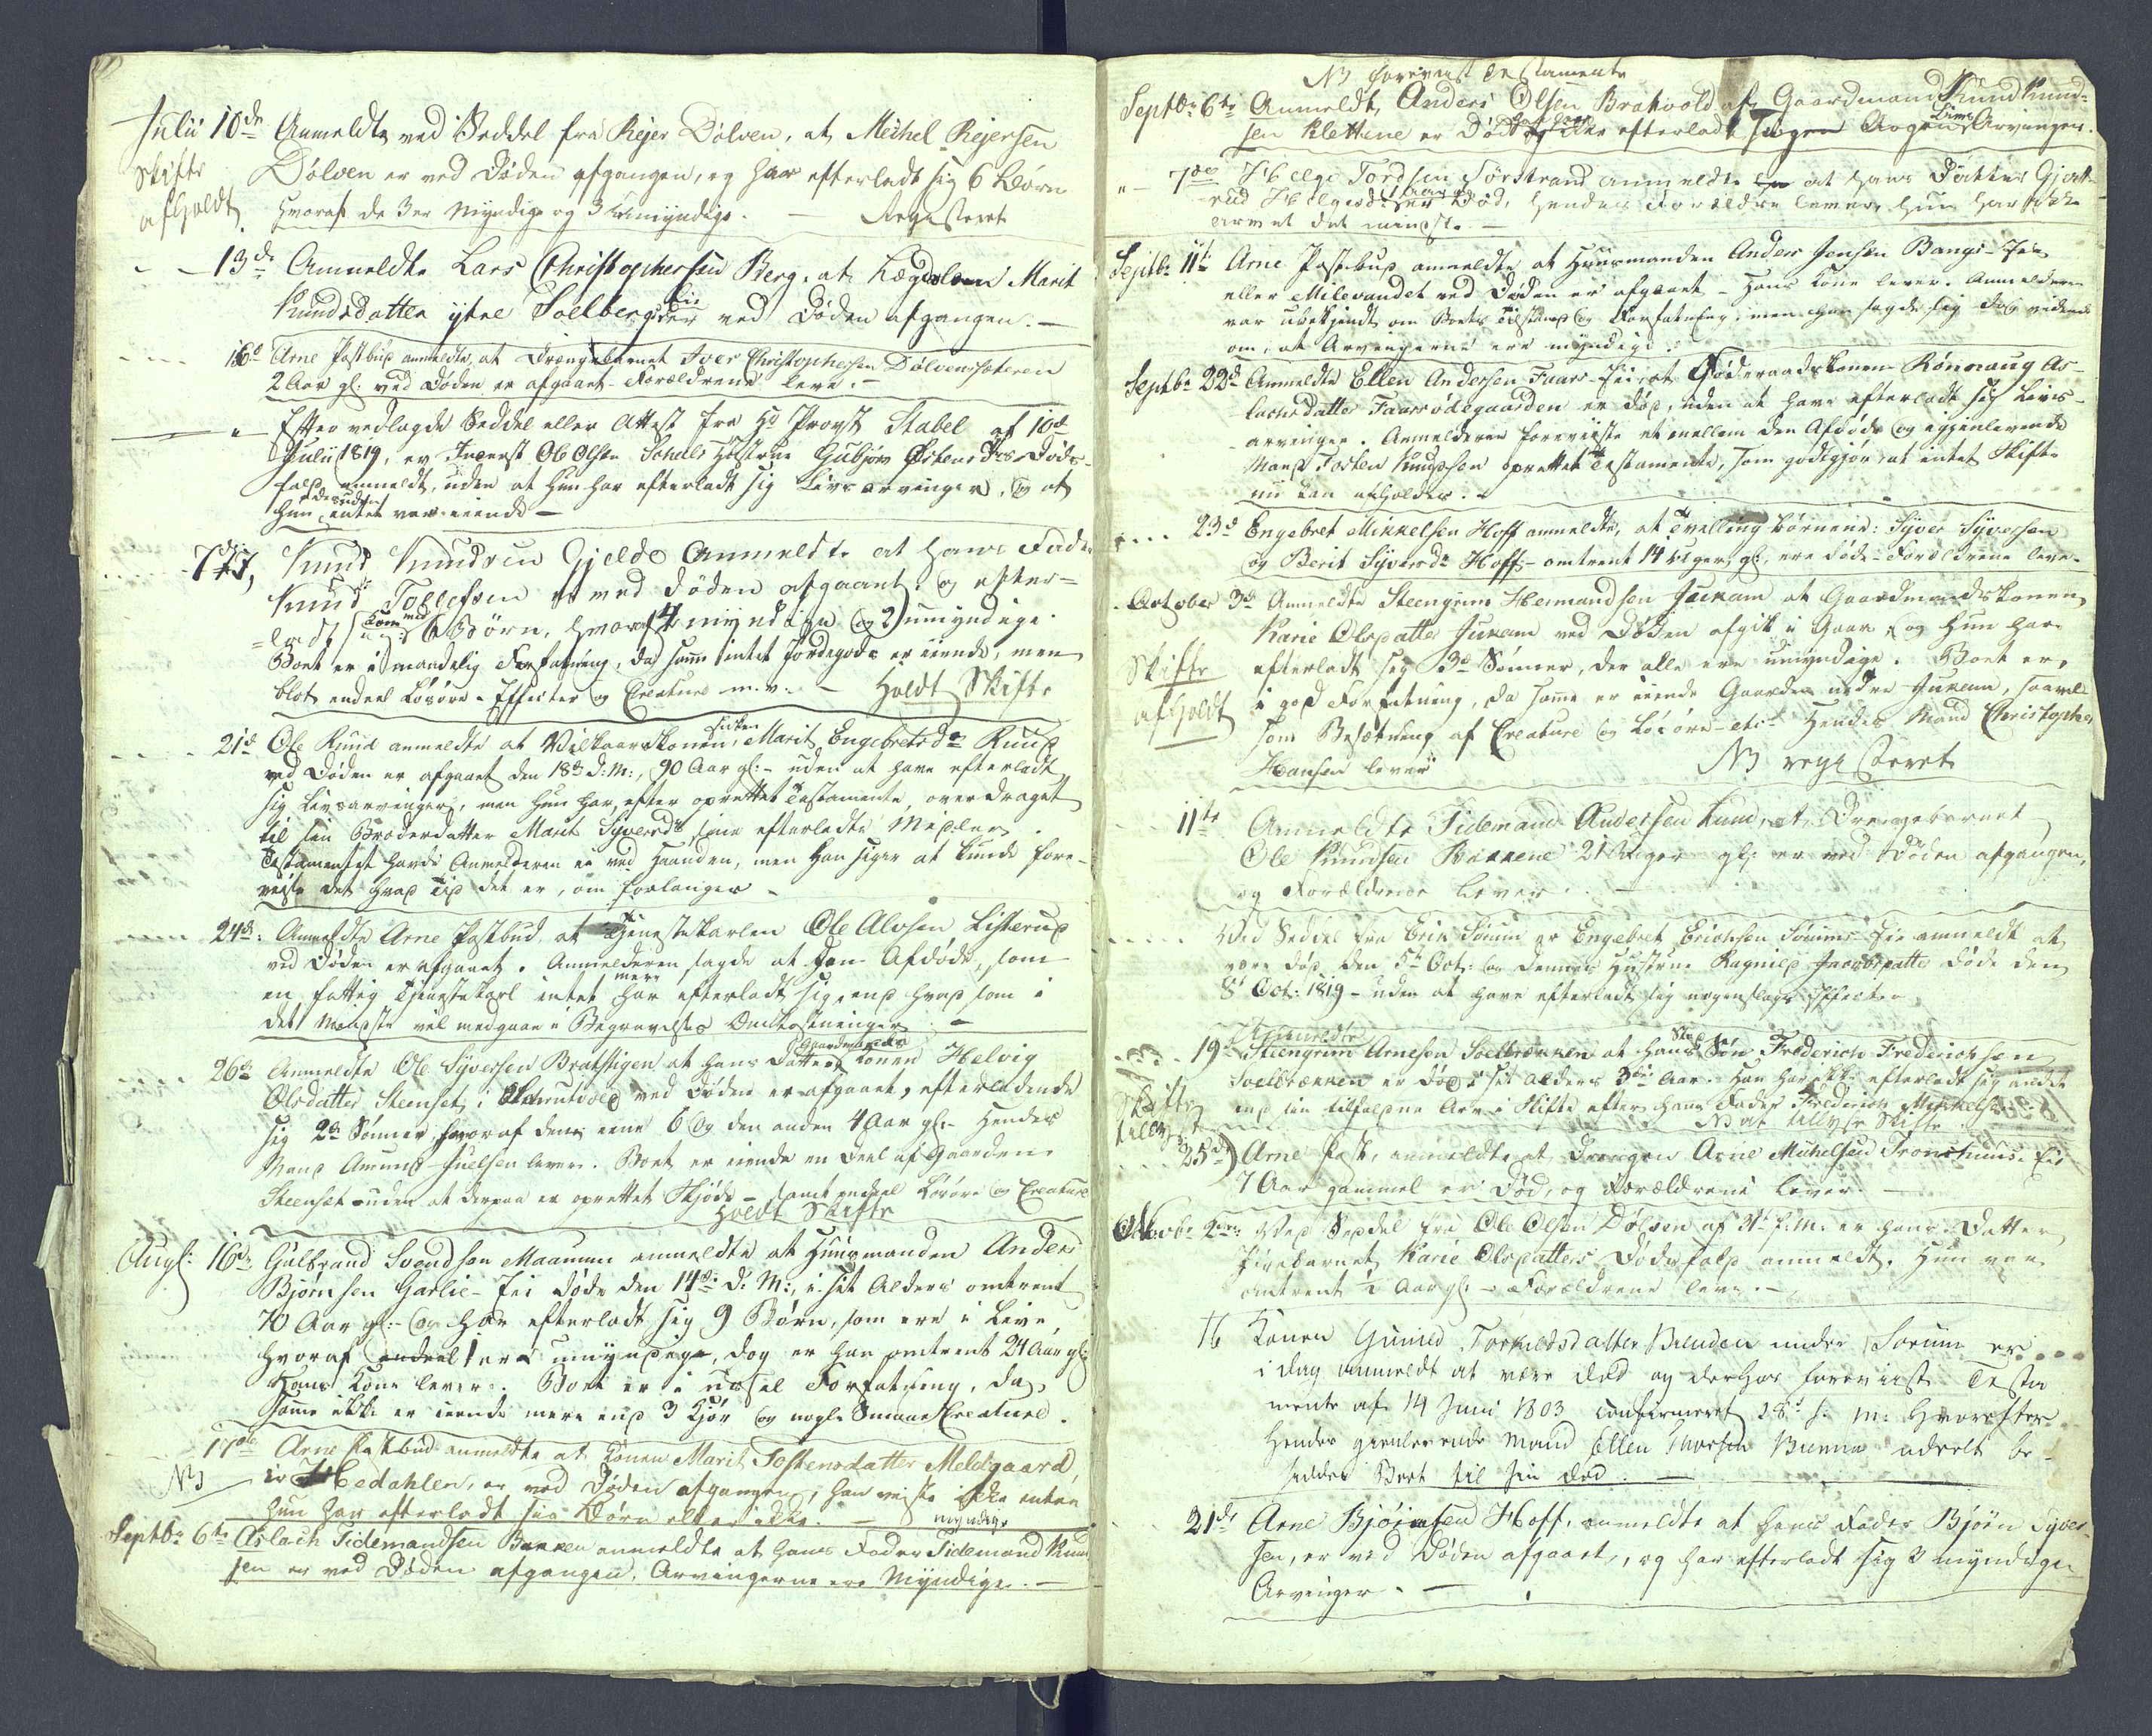 Julii 10de Anmeldte ved Seddel fra Rejer Dölven, at Michel Rejersen
Skifte Dölven er ved Döden afgangen, og har efterladt sig 6 Börn
afholdt. hvoraf de 3 er Myndige og 3 Umyndige. — Registeret
— 13de Anmeldte Lars Christophersen Berg, at Lægdslem Marit
Knudsdatter ytre Soelberg Eie er ved Döden afgangen. —
16d Arne Postbud anmeldte, at Drengebarnet Iver Christophersen Dölvensæteren
2 Aar gl: ved Döden er afgaaet – Forældrene leve. —
" Efter vedlagde Seddel eller Attest fra Hr Provst Stabel af 10de
Julii 1819, er Inderst Ole Olsen Hustrue Gubjör Östens Ds Döds-
fald anmeldt, uden at hun har efterladt sig Livsarvinger, og at
hun desuden intet var eiende —
Knud Knudsen Gjelde Anmeldte at hans Fader
Knud Tollefsen er ved Döden afgaaet, og efter-
=ladt Kone med 6 Börn, hvoraf 4 myndige og 2 umyndige.
Boet er i maadelig Forfatning, da samme intet Jordegods er eiende, men
blot endeel Lösöre-Effecter og Creature m. v. — Holdt Skifte
21de Ole Ruud anmeldte at Vilkaarskonen, Enken Marit Engebretsdr Ruud
ved Döden er afgaaet den 18de d: M:, 90 Aar gl: – uden at have efterladt
sig Livsarvinger, men hun har, efter oprettet Testamente, overdraget
til sin Broderdatter Marit Syversdr sine efterladte Midler.
Testamentet havde Anmelderen ei ved Haanden, men han siger at kunde fore-
viise det hvad Tid det er, om forlanges —
24de: Anmeldte Arne Postbud at Tjenestekarlen Ole Alvsen Listerud
ved Döden er afgaaet. Anmelderen sagde at den Afdöde, som
en fattig Tjenestekarl intet mere har efterladt sig, end hvad som i
det mindste vil medgaae i Begravelses Omkostninger —
26de Anmeldte Ole Syversen Bratstigen at hans Datter Gaardmands Konen Helvig
Olsdatter Steenset i ved Döden er afgaaet, efterladende
sig 2de Sönner, hvoraf den eene 6 og den anden 4 Aar gl: – Hendes
Mand Amund Juelsen lever. Boet er eiende en Deel af Gaarden
Steenset uden at derpaa er oprettet Skjöde – samt endeel Lösöre og Creature
Holdt Skifte
Augs: 16de Gulbrand Svendsen Maanum anmeldte at Huusmanden Anders
Björnsen Garlie-Eie döde den 14de d: M:, i sit Alders omtrent
70 Aar gl: – og har efterladt sig 9 Börn, som ere i Live,
hvoraf 1 er umyndige, dog er han omtrent 24 Aar gl:
Hans Kone lever. Boet er i ussel Forfatning, da
samme ikke er eiende mere end 3 Kjör og nogle Smaae Creature.
17de Arne Postbud anmeldte at Konen Marit Tostensdatter Meldgaard,
NB i Hedahlen, er ved Döden afgangen, han veiste ikke enten
hun har efterladt sig Börn eller ikke. — myndige
Septbr 6te Aslach Tidemandsen Bakken anmeldte at hans Fader Tidemand Knud
sen er ved Döden afgangen. Arvingerne ere Myndige. —
NB foreviist Testamente
Septbr 6te Anmeldt, Anders Olsen Bratvold af Gaardmand Knud Knud-
sen Klettene er Död og ikke efterladt sig nogen Livs Arvinger.
" — 7de Helge Tordsen Sörstrand anmeldte at hans Datter Gjert-
rud Helgesdr 1 Aar er Död, hendes Forældre lever, hun har ikke
arvet det mindste. —
Septbr 11te Arne Postbud anmeldte at Huusmanden Anders Jensen Bangs-Eie
eller Milevandet ved Döden er afgaaet – Hans Kone lever. Anmelderen
var ubekjendt om Boets Tilstand og Forfatning, men han sagde sig dog vidende
om, at Arvingerne ere myndige.
Septbr 22de Anmeldte Ellen Andersen Faars-Eie, at Föderaadskonen Rönnaug As-
lachsdatter Faarsödegaarden er död, uden at have efterladt sig Livs-
arvinger. Anmelderen foreviiste et mellem den Afdöde og igjenlevende
Mand Tosten Knudsen oprettet Testamente, som godtgjör at intet Skifte
nu kan afholdes. —
23de Engebret Mikkelsen Hoff anmeldte, at Tvillingbörnene: Syver Syversen
og Berit Syversdr Hoff – omtrent 14 Uger gl:, ere döde – Forældrene leve.
October 3de Anmeldte Steengrim Hermandsen Juvkam at Gaardmandskonen
Karie Olsdatter Juvkam ved Döden afgik i Gaar, og hun har
Skifte efterladt sig 3de Sönner, der alle ere umyndige. Boet er
afholdt i god Forfatning, da samme er eiende Gaarden nedre Juvkam, saavel
som Besætning af Creature og Lösöre – etc. Hendes Mand Christopher
Hansen lever NB registeret
11te Anmeldte Tidemand Andersen Lund, at Drengebarnet
Ole Knudsen Bakkene 21 Uger gl: er ved Döden afgangen,
og Forældrene lever. —
Ved Seddel fra Erik Sörum er Engebret Erichsen Sörums Eie anmeldt at
være död den 5te Oct: og dennes Hustrue Ragnild Jacobsdatter döde den
8de Oct: 1819 – uden at have efterladt sig nogenslags Effecter.
19de Anmeldte Steengrim Arnesen Soelbrekken at hans Sted Sön Frederich Frederichsen
Soelbrækken er död i sit Alders 3die Aar. Han har ikke efterladt sig andet
Skifte end sin tilfaldne Arv i Skifte efter hans Fader Frederich Mikkelsen
tillyst NB at tillyse Skifte.
25de Arne Post. anmeldte at Drengen Arne Michelsen Tronshuus-Eie
7 Aar gammel er Död, og Forældrene lever. —
Novbr 2den Ved Seddel fra Ole Olsen Dölven af f: M: er hans Datter
Pigebarnet Karie Olsdatters Dödsfald anmeldt. Hun var
omtrent ½ Aar gl: – Forældrene leve. —
16 Konen Gunild Torkildsdatter Bunden under Sorum er
i dag anmeldt at være död og derhos foreviist Testa
mente af 14 Juni 1803 confirmeret 28de s: M: hvorefter
hendes gjenlevende Mand Ellen Thorsen Bunden udeelt be-
sidder Boet til sin död. —
21de Arne Björnsen Hoff, anmeldte at hans Fader Björn Syver-
sen, er ved Döden afgaaet, og har efterladt sig 3 myndige
Arvinger. —